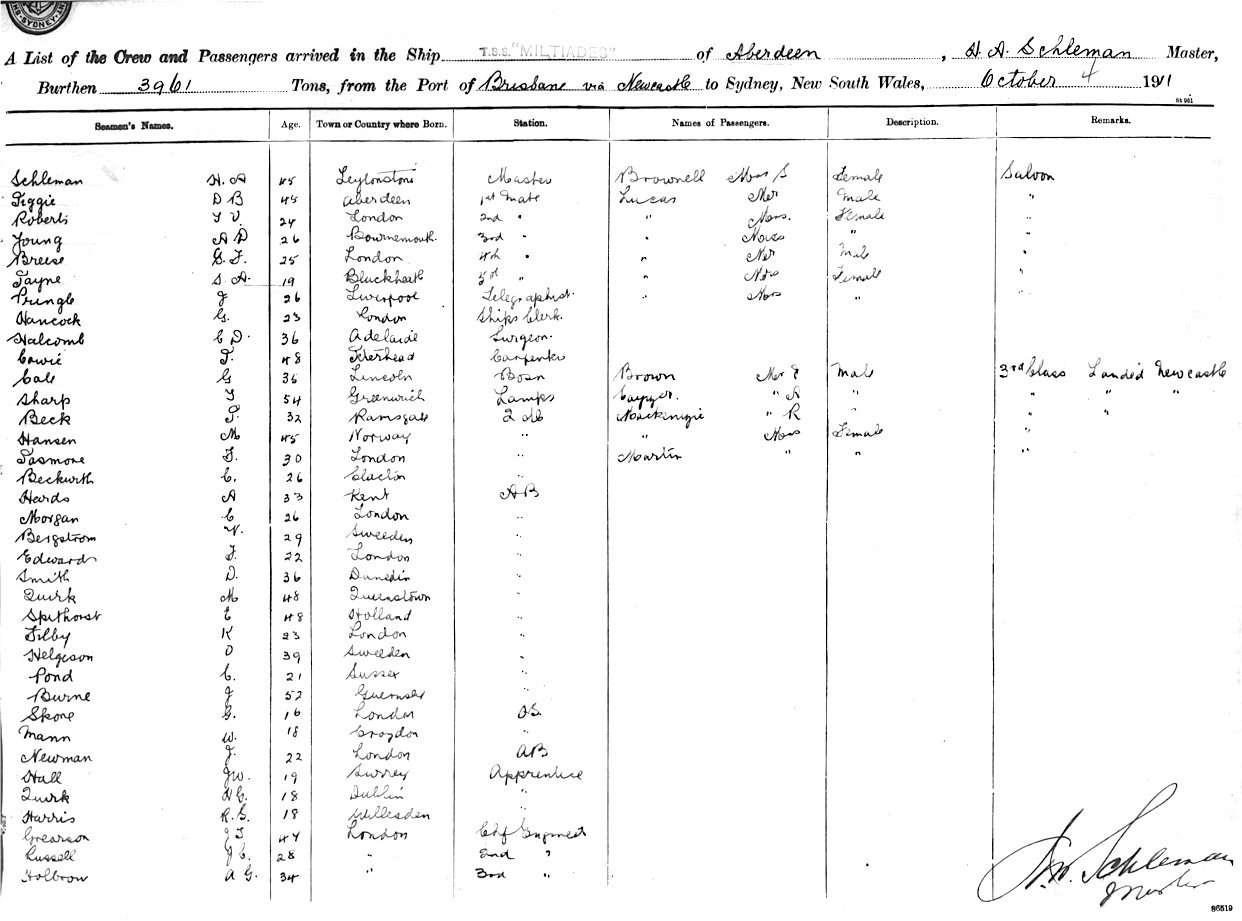 SYDNEY
A List of the Crew and Passengers arrived in the Ship T.S.S. "MILTIADES" of Aberdeen, H. A. Schleman Master,
Burthen 3961 Tons, from the Port of Brisbane via Newcastle to Sydney, New South Wales, October 4 1911
84 951
Seamen's Names. Age. Town or Country where Born. Station. Names of Passengers. Description. Remarks.
Schleman H. A 45 Leytonstone Master Brownell Mrs S Female Saloon
D B 45 Aberdeen 1st Mate Lucas Mr Male "
Roberts 24 London 2nd " " Mrs. Female "
Young A D 26 Bournemouth 3rd " " " "
Breese 25 London 4th " " Mr Male "
S. A. 19 Blackheath 5th " " Female "
Pringle J 26 Liverpool Telegraphist " "
Hancock G. 23 London Ships Clerk.
Halcomb C D. 36 Adelaide Surgeon
Cowie 48 Peterhead Carpenter
Cale G 35 Lincoln Bosn Brown Mr Male 3rd Class Landed Newcastle
Sharp 54 Greenwich Lamps " A " " " "
Beck 32 Ramsgate Mackenzie " R " "
Hansen M 45 Norway " " Mrs Female "
30 London Martin " " "
Beckwith C. 26 Clacton "
Hards A 33 Kent AB
Morgan C 26 London "
Bergstrom 29 Sweeden "
Edwards F. 22 London "
Smith D. 36 Dunedin "
Quirk M 48 Queenstown "
Spithorst E 48 Holland "
Filby K 23 London "
Helgeson O 39 Sweeden "
Pond C. 21 Sussex "
Burne J 52 Guernsey "
Skone G. 16 London OS.
Mann W. 18 Croydon "
Newman J. 22 London AB
Hall J W. 19 Surrey Apprentice
Quirk H G. 18 Dublin "
Harris R. G. 18 Willesden "
Grearson 47 London Chf Engineer
Russell J C. 28 " 2nd "
Holbrow A G. 34 " 3rd "
Schleman
Master
86519